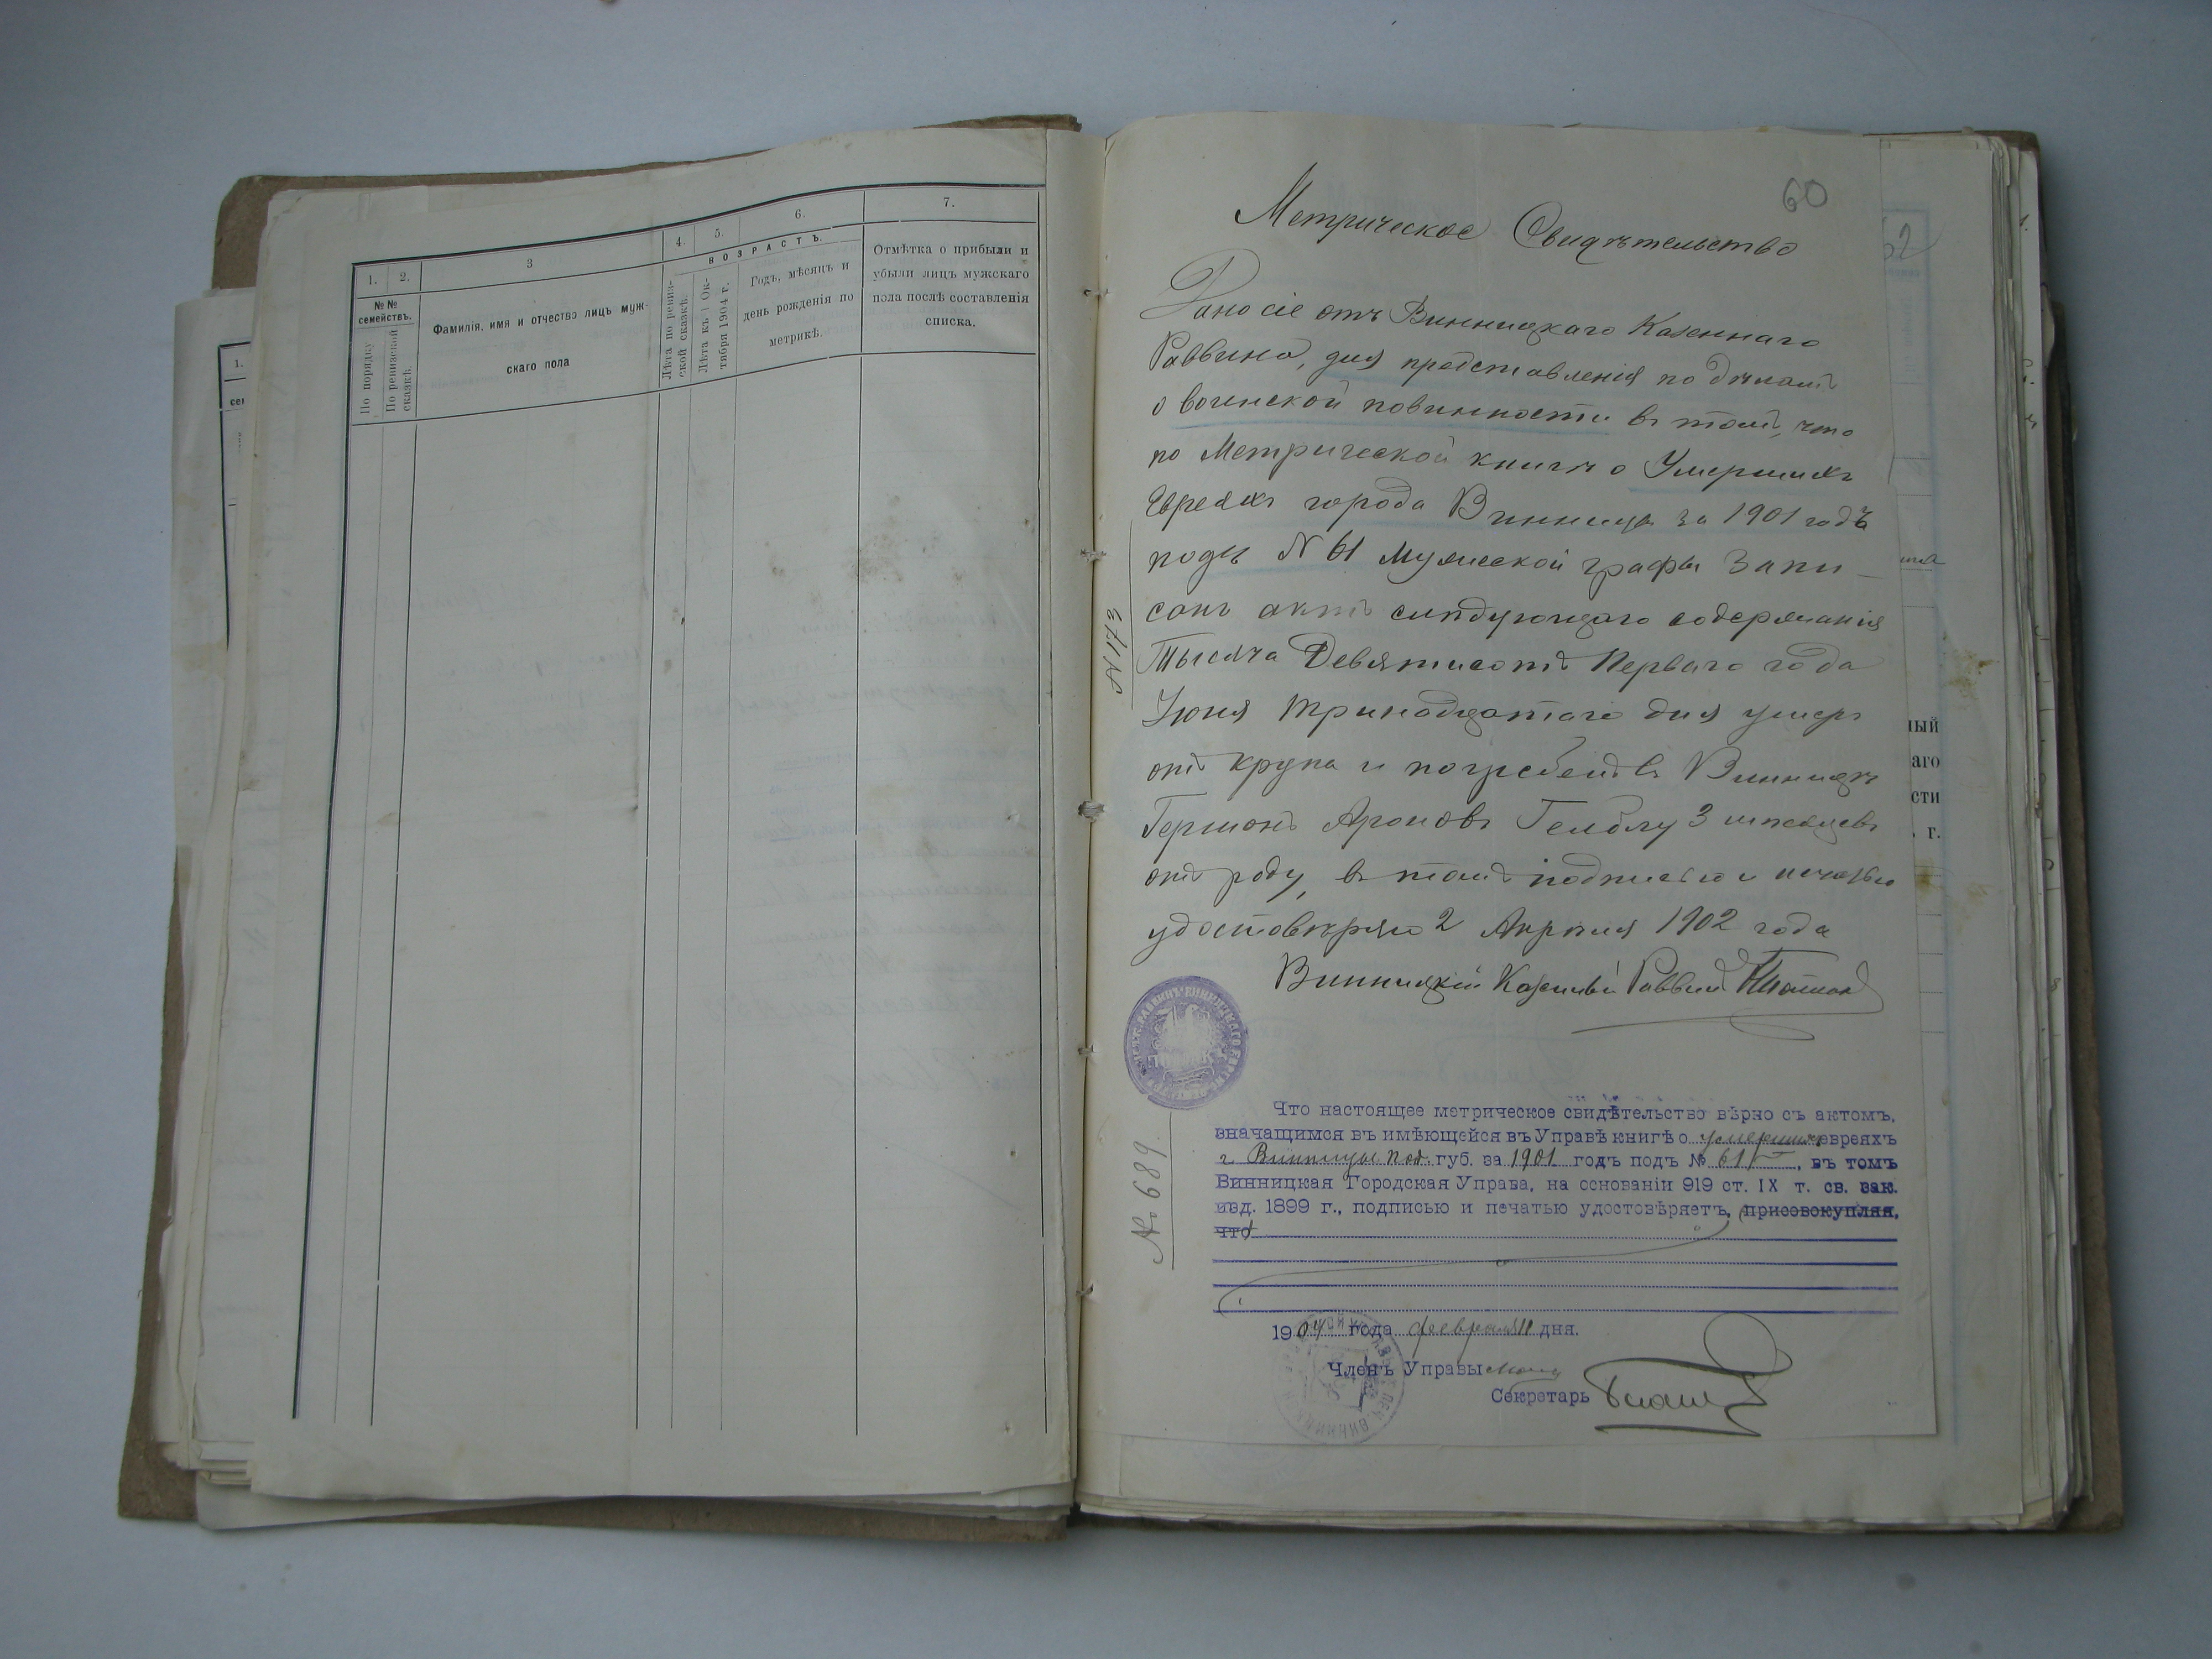 1.
2.
3
4.
5.
6.
7.
№№ семействъ.
По порядку
По ревизской сказкѣ.
Фамилія, имя и отчество лицъ муж-
скаго пола
ВОЗРАСТЪ.
Лѣта по ревиз-
ской сказкѣ.
Лѣта къ 1 Ок-
тября 1904 г.
Годъ, мѣсяцъ и
день рожденія по
метрикѣ.
Отмѣтка о прибыли и
убыли лицъ мужскаго
пола послѣ составленія
списка.
1.
60
62
Метрическое Свидѣтельство
Дано сіе отъ Винницкаго Казеннаго
Раввина, для представленія по дѣламъ
о воинской повинности въ томъ, что
по Метрической книгѣ о Умершихъ
Евреяхъ города Винница за 1901 годъ
подъ N 61 Мужеской графы Запи-
санъ актъ слѣдующаго содержанія
Тысяча Девятисотъ Перваго года
Іюня тринадцатаго дня умеръ
отъ крупа и погребенъ въ Винницѣ
Гершонъ Ароновъ 3 мѣсяцевъ
отъ роду, въ томъ подписью и печатью
удостовѣряю 2 Апрѣля 1902 года
Винницкій Казенный Раввинъ
N 173
№ 689
Что настоящее метрическое свидѣтельство вѣрно съ актомъ,
значащимся въ имѣющейся въ Управѣ книгѣ о умершихъ евреяхъ
г. Винницы Под. губ. за 1901 годъ подъ № 61, въ томъ
Винницкая Городская Управа, на основаніи 919 ст. IX т. св. зак.
изд. 1899 г., подписью и печатью удостовѣряетъ, присовокупляя,
что
1904 года февраля 11 дня.
Членъ Управы
Секретарь
ный
аго
сти
г.